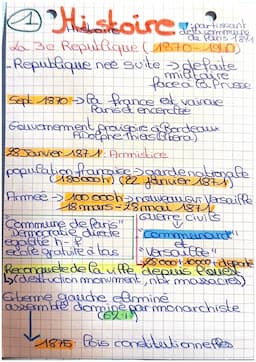 1 Histoire
partissant
de la commune
de Paris 1871
La 3e République (1870-1940)
- République née suite → défaite
militaire
face à la Prusse
Sept 1870 → la france est vaincue
Paris est encerclée
Gouvernement provisoire à Bordeaux
Adolphe Thiers
28 Janvier 1871 : Armistice
population française → garde nationale
180000h (22 janvier 1871)
Armée → 100 000h → nouveau sur Versaille
18 mars - 28 mai 1871
guerre civils
"Commune de Paris"
Démocratie directe
égalité h-f
école gratuite à tous
"Communard"
et
"Versaille"
Reconquête de la ville depuis l'ouest
↳ (destruction monument, nbr massacres)
Gauche éliminé
assemblé dominé par monarchiste
↓ 1875 lois constitutionnelles